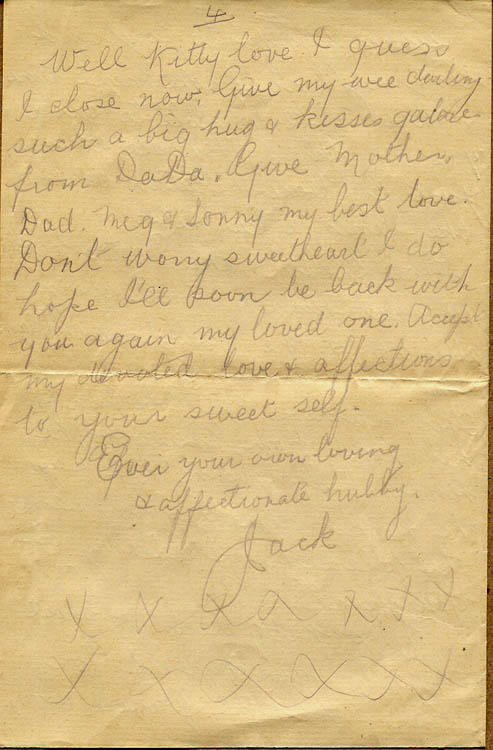 4
Well Kitty love I guess
I close now. Give my wee darling
such a big hug & kisses galore
from DaDa. Give Mother,
Dad. Meg & Sonny my best love.
Don't worry sweetheart I do
hope I'll soon be back with
you again my loved one. Accept
my devoted love & affections
to your sweet self.
Ever your own loving
& affectionate hubby.
Jack
X X X X X X X
X X X X X X